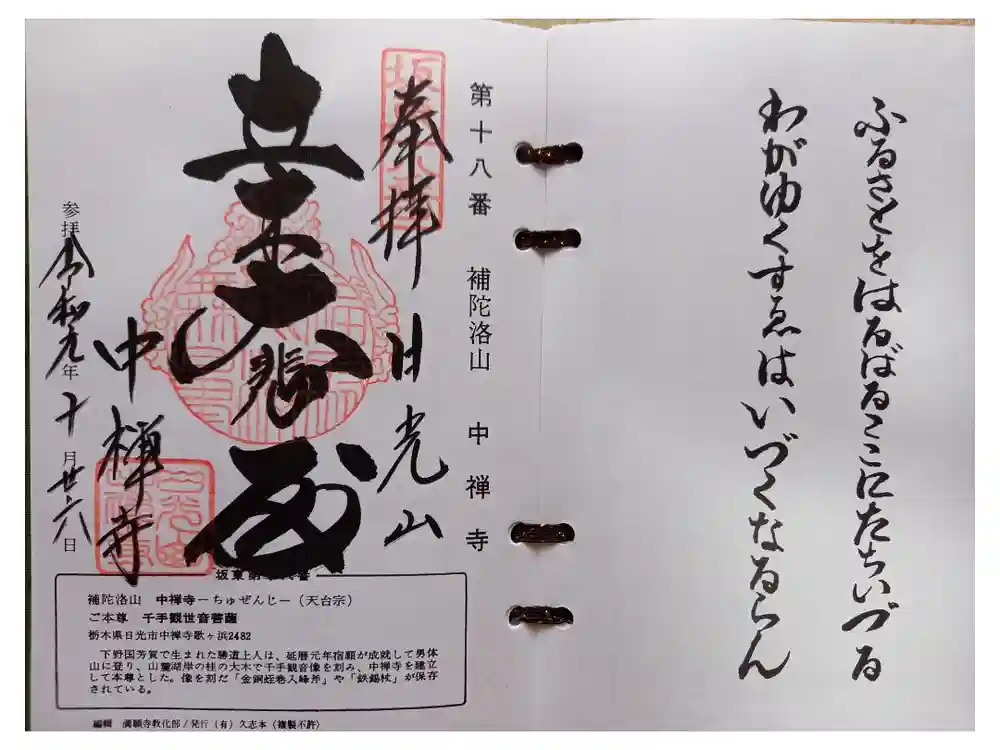 ふるさとをはるばるここにたちいづる
わがゆくすゑはいづくなるらん
第十八番 補陀洛山 中禅寺
奉拝 日光山
大悲
中禅寺
参拝 令和元年十月廿六日
補陀洛山 中禅寺ーちゅぜんじー（天台宗）
ご本尊 千手観世音菩薩
栃木県日光市中禅寺歌ヶ浜2482
下野国芳賀で生まれた勝道上人は、延暦元年宿願が成就して男体
山に登り、山麓湖岸の桂の大木で千手観音像を刻み、中禅寺を建立
して本尊とした。像を刻だ「金銅蛭巻入峰斧」や「鉄錫杖」が保存
されている。
編輯 満願寺教化部／発行（有）久志本（複製不許）